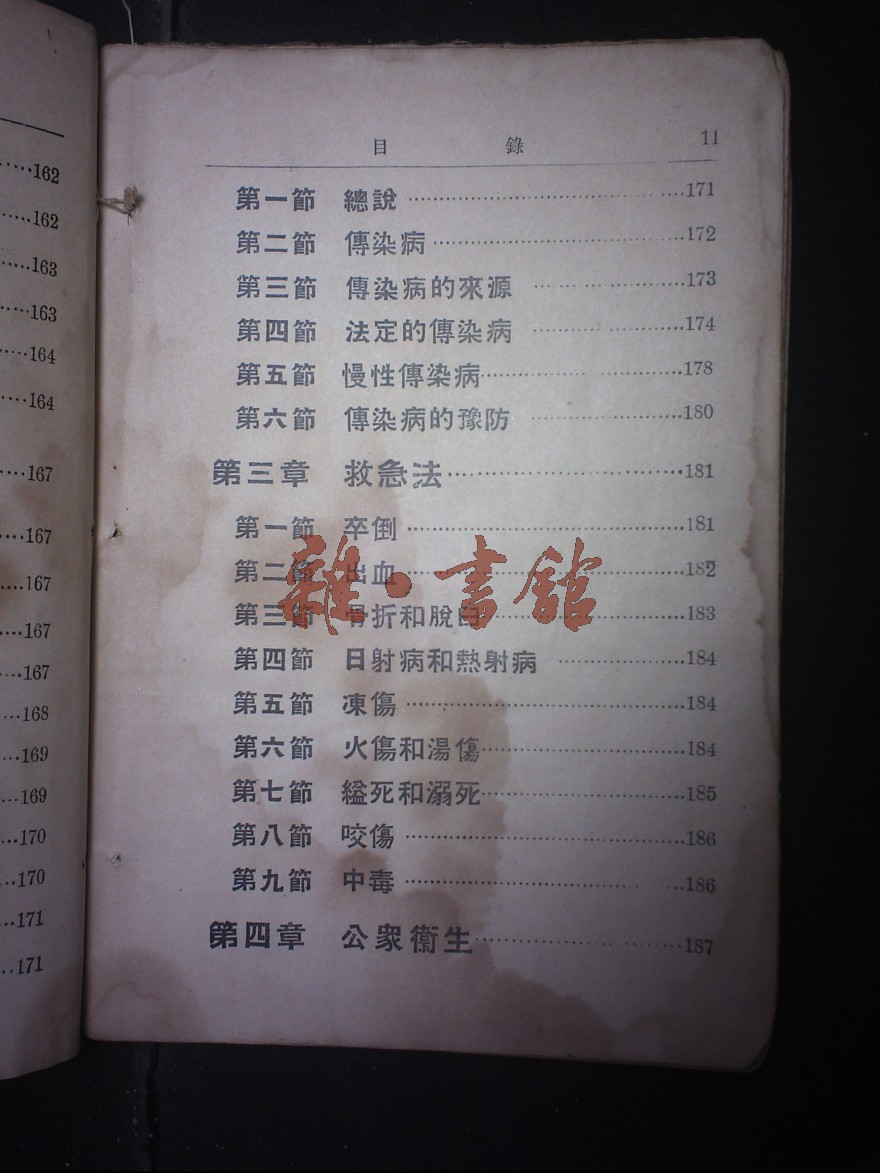 162
162
163
163
164
164
167
167
167
167
167
168
169
169
170
170
171
171
目 錄 11
第一節 總說 171
第二節 傳染病 172
第三節 傳染病的來源 173
第四節 法定的傳染病 174
第五節 慢性傳染病 178
第六節 傳染病的豫防 180
第三章 救急法 181
第一節 卒倒 181
第二節 出血 182
第三節 骨折和脫臼 183
第四節 日射病和熱射病 184
第五節 凍傷 184
第六節 火傷和湯傷 184
第七節 縊死和溺死 185
第八節 咬傷 186
第九節 中毒 186
第四章 公眾衞生 187
雜·書館